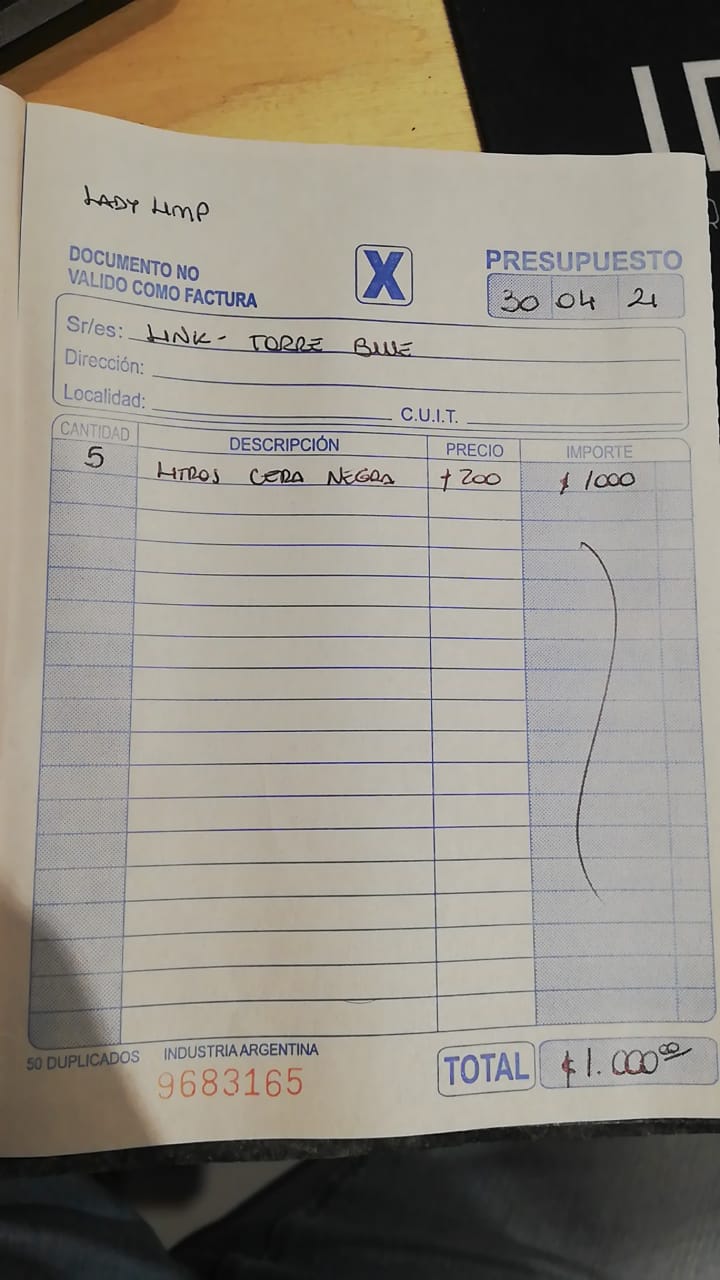 LADY LIMP
DOCUMENTO NO
VALIDO COMO FACTURA
X
PRESUPUESTO
30 04 21
Sr/es: LINK - TORRE BLUE
Dirección:
Localidad:
C.U.I.T.
CANTIDAD DESCRIPCIÓN PRECIO IMPORTE
5 LITROS CERA NEGRA $200 $ 1000
50 DUPLICADOS INDUSTRIA ARGENTINA
9683165
TOTAL $1.00000